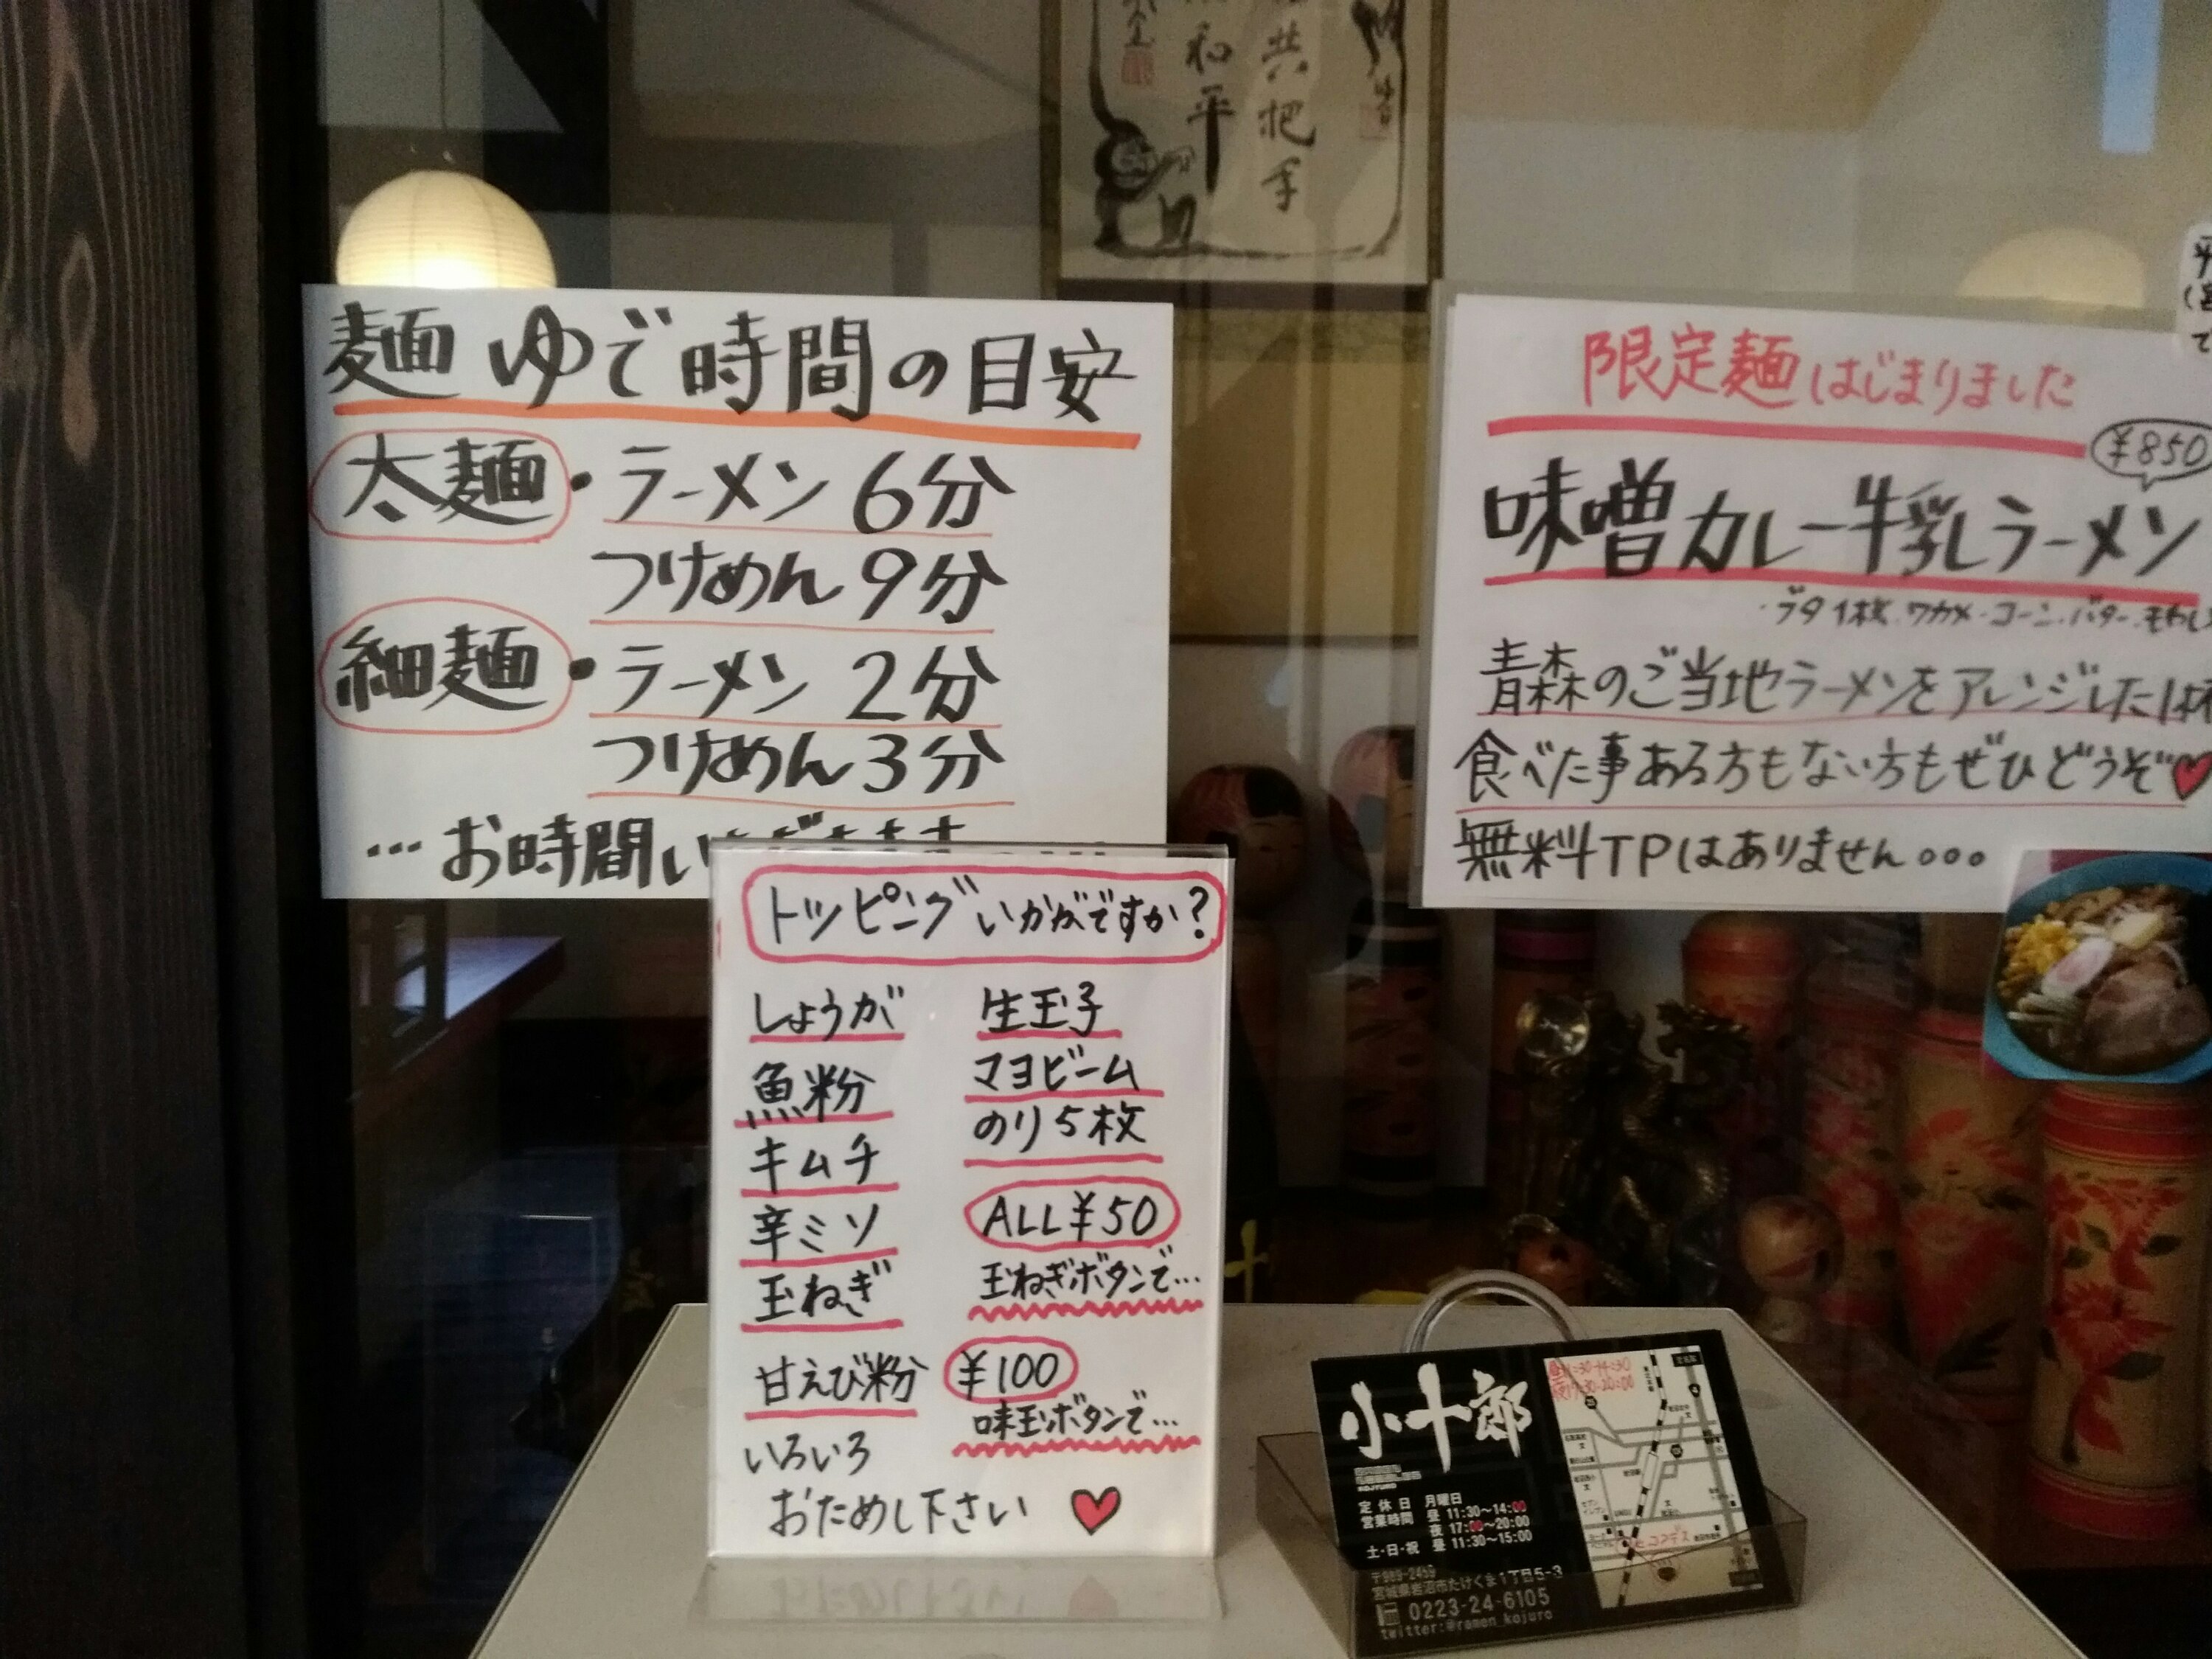 共把手
和平
麺ゆで時間の目安
太麺・ラーメン6分
つけめん9分
細麺・ラーメン2分
つけめん3分
…お時間
限定麺はじまりました
¥850
味噌カレー牛乳ラーメン
・ブタ1枚・ワカメ・コーン・バター・もやし
青森のご当地ラーメンをアレンジした1杯
食べた事ある方もない方もぜひどうぞ♥
無料TPはありません。。。
トッピングいかがですか?
しょうが
魚粉
キムチ
辛ミソ
玉ねぎ
甘えび粉
いろいろ
おためし下さい ♥
生玉子
マヨビーム
のり5枚
ALL¥50
玉ねぎボタンで…
¥100
味玉ボタンで…
小十郎
KOJYURO
定休日 月曜日
営業時間 昼 11:30〜14:00
夜 17:00〜20:00
土・日・祝 昼 11:30〜15:00
〒989-2459
宮城県岩沼市たけくま1丁目5-3
0223-24-6105
twitter:@ramen_kojuro